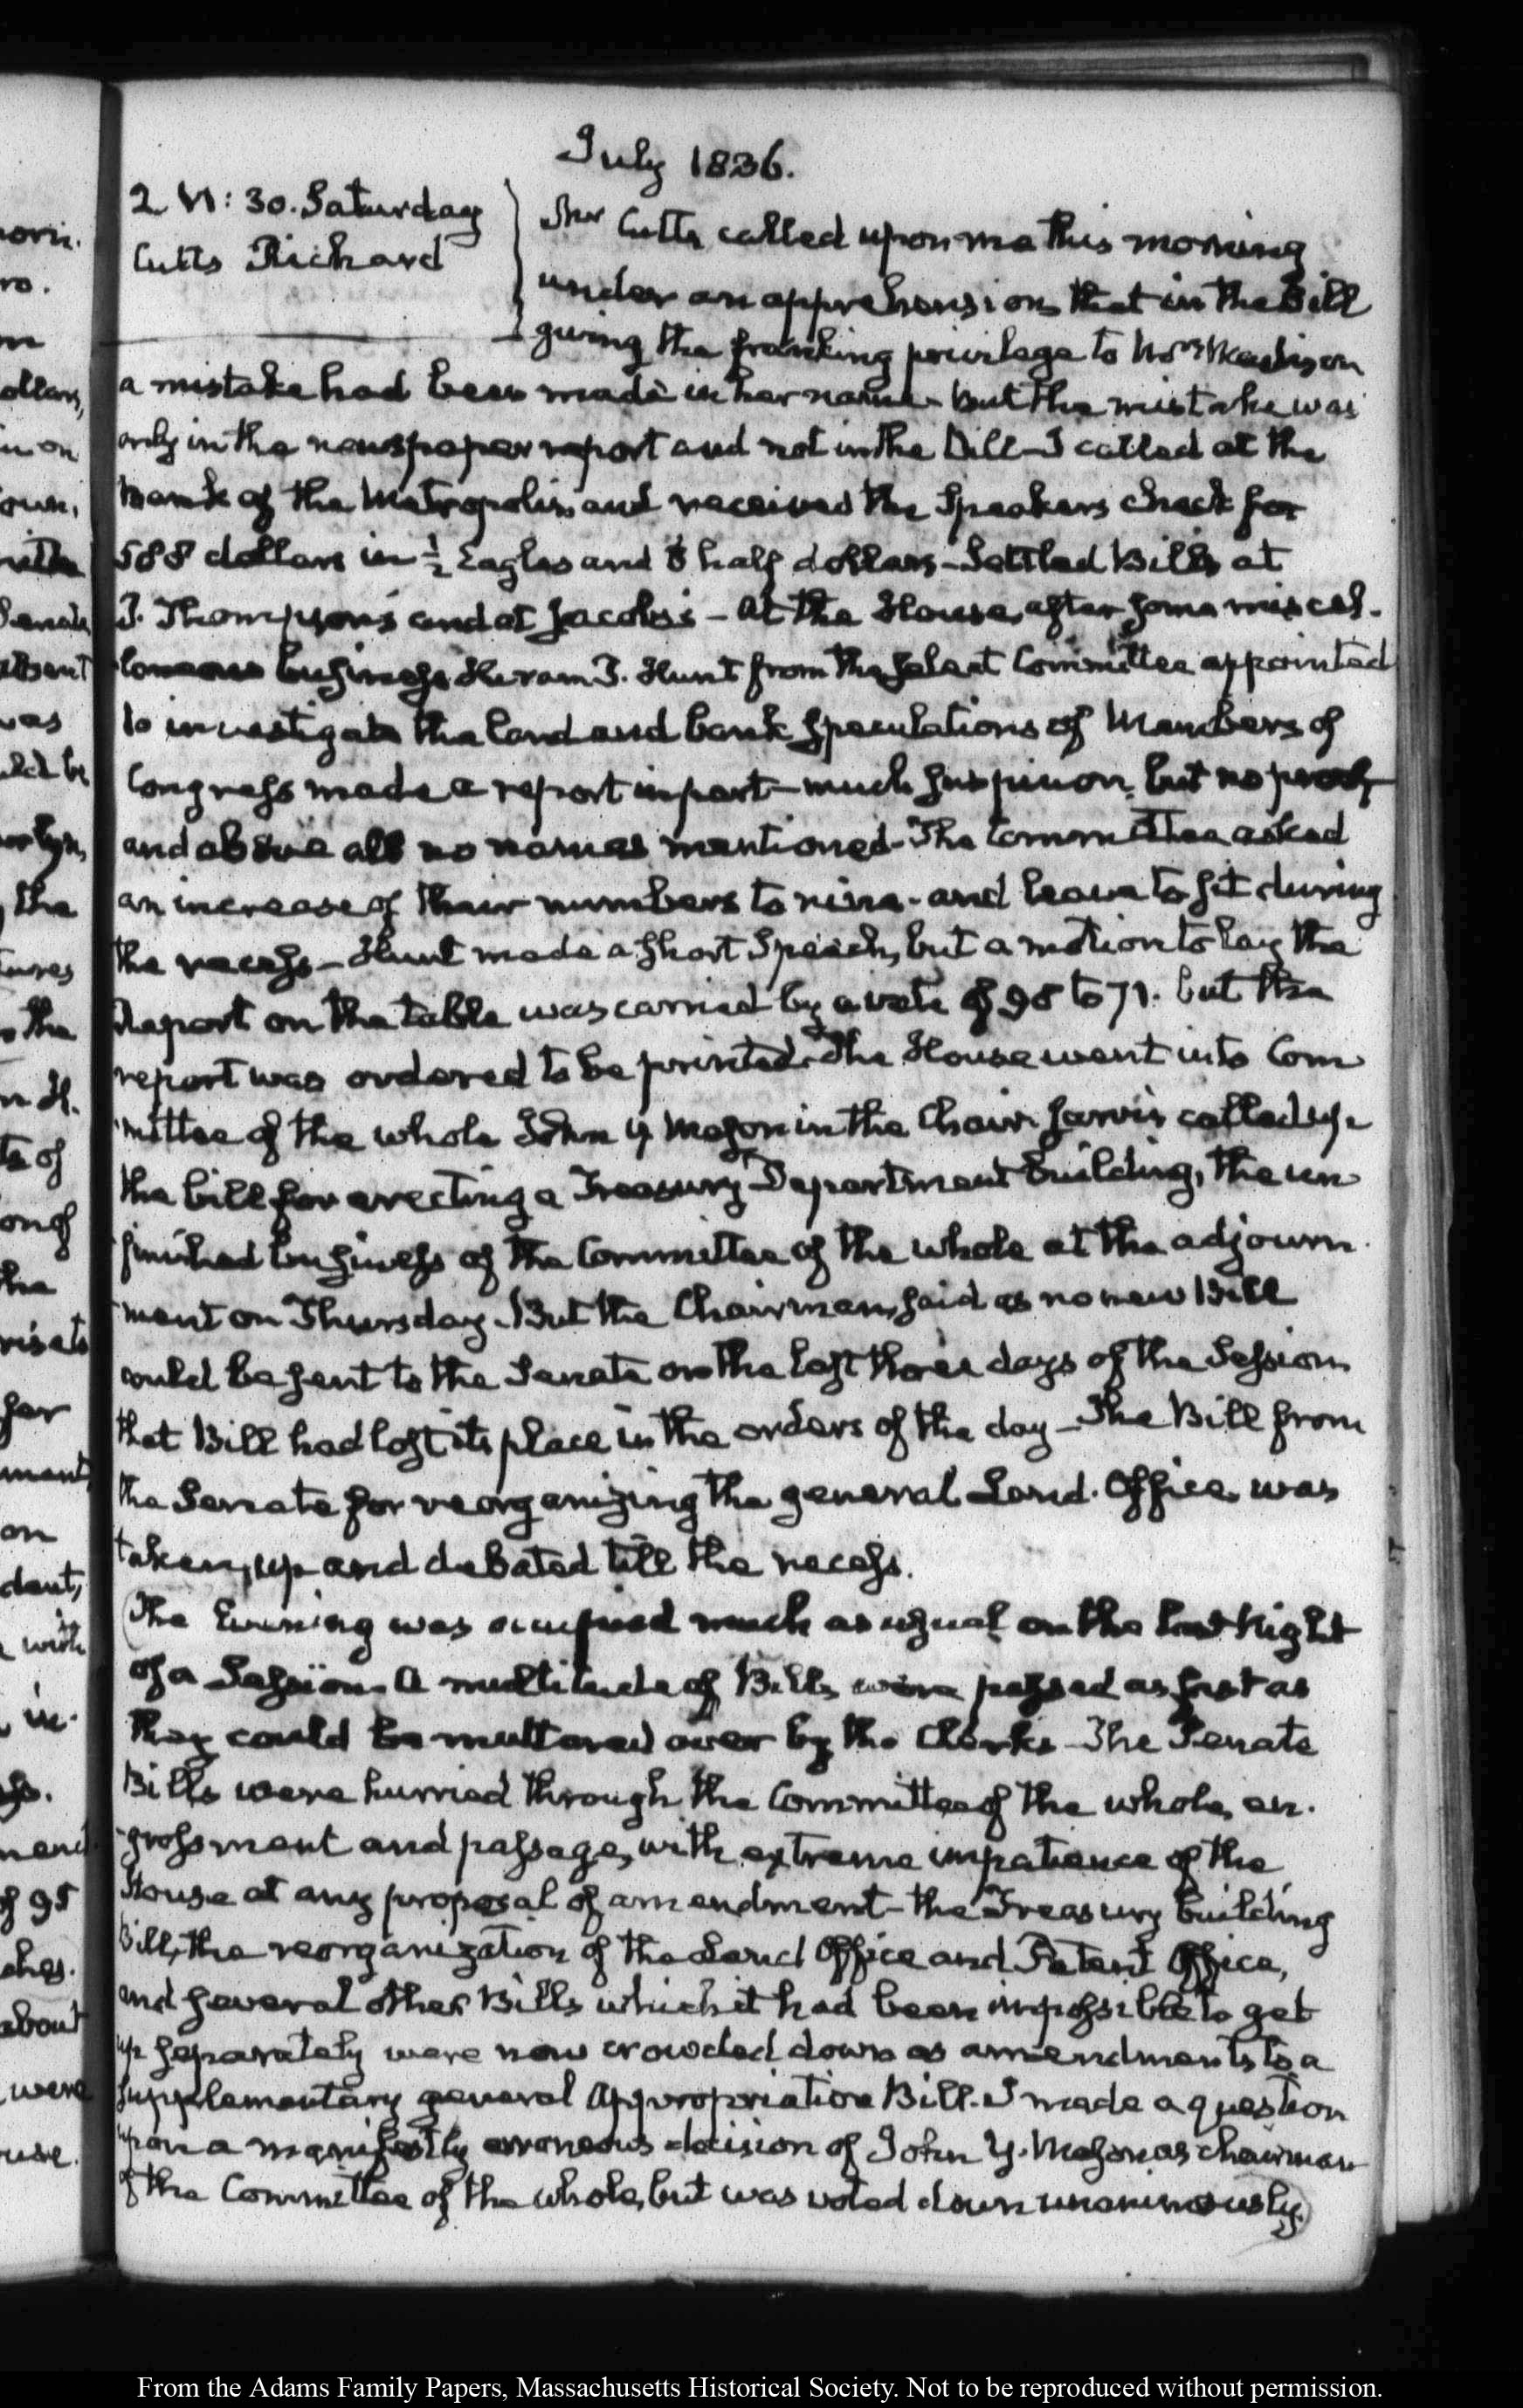 July 1836.
2 VI: 30. Saturday
Cutts Richard
Mr Cutts called upon me this morning
under an apprehension that in the Bill
giving the franking privilege to Mrs Madison
a mistake had been made in her name. But the mistake was
only in the newspaper report and not in the Bill – I called at the
Bank of the Metropolis and received the Speakers check for
588 dollars in ½ Eagles and 6 half dollars – Settled Bills at
J. Thompson's and at Jacobs's – At the House, after some miscel-
laneous business Hiram J. Hunt from the select Committee appointed
to investigate the land and bank speculations of Members of
Congress made a report in part – much suspicion, but no proof,
and above all no names mentioned – The Committee asked
an increase of their numbers to nine – and leave to sit during
the recess – Hunt made a short Speech, but a motion to lay the
Report on the table was carried by a vote of 98 to 71. but the
report was ordered to be printed. The House went into Com
mittee of the whole John Y Mason in the Chair. Jarvis called up
the bill for erecting a Treasury Department building, the un
finished business of the Committee of the whole at the adjourn-
ment on Thursday. But the Chairman, said as no new Bill
could be sent to the Senate on the last three days of the Session
that Bill had lost its place in the orders of the day – The Bill from
the Senate for reorganizing the general Land. Office was
taken, up and debated till the recess.
The Evening was occupied much as usual on the last Night
of a Session. A multitude of Bills were passed as fast as
they could be muttered over by the Clerks – The Senate
Bills were hurried through the Committee of the whole, en-
grossment and passage, with extreme impatience of the
House at any proposal of amendment – the Treasury building
Bill, the reorganization of the Land Office and Patent Office,
and several other Bills which it had been impossible to get
up separately were now crowded down as amendments to a
supplementary general Appropriation Bill. I made a question
upon a manifestly erroneous decision of John Y. Mason as chairman
of the Committee of the whole, but was voted down unanimously.
From the Adams Family Papers, Massachusetts Historical Society. Not to be reproduced without permission.